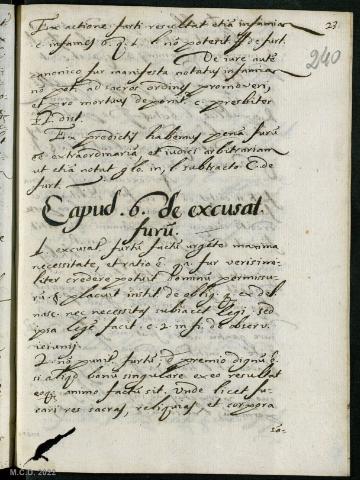 23.
240
Ex actione furti resultat etiã infamia
c. infames 6. q. 1. l. nõ poterit ff. de furt.
De iure autẽ
canonico fur manifesta notatus infamia
nõ pot. ad sacros ordines promoveri,
et pro mortuus deponit. c. presbiter
81. dist.
Ex predictis habemus penã furti
extraordinariã, et iudici arbitrariam
ut etiã notat glo. in l. subtracto C. de
furt.
Capud. 6. de excusat.
furũ.
1. excusat furtũ factũ urgẽte maxima
necessitate, et ratio q. fur verisimi-
liter credere potuit dominũ permissu-
rũ. § placuit instit. de oblig. ex del.
nasc. nec necessitas subiacet legi, sed
ipsa legẽ facit c. 2. in fi. de observ.
ieiunij.
2. nõ punit. furtũ premio dignũ
si aliq. bonũ singulare ex eo resultat
animo factũ sit. Unde licet fu-
rari res sacras, reliquias, et corpora